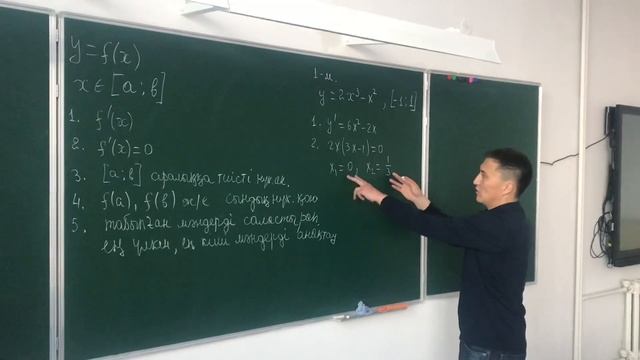 y = f(x)
x ∈ [a ; b]
1. f'(x)
2. f'(x) = 0
3. [a ; b] аралыққа тиісті нүк.
4. f(a), f(b) ж/е сындық нүк. қою
5. табылған мәндерді салыстырып
ең үлкен, ең кіші мәндерді анықтау
1-м.
y = 2x³ - x² , [-1 ; 1]
1. y' = 6x² - 2x
2. 2x(3x-1) = 0
x₁ = 0, x₂ = 1/3